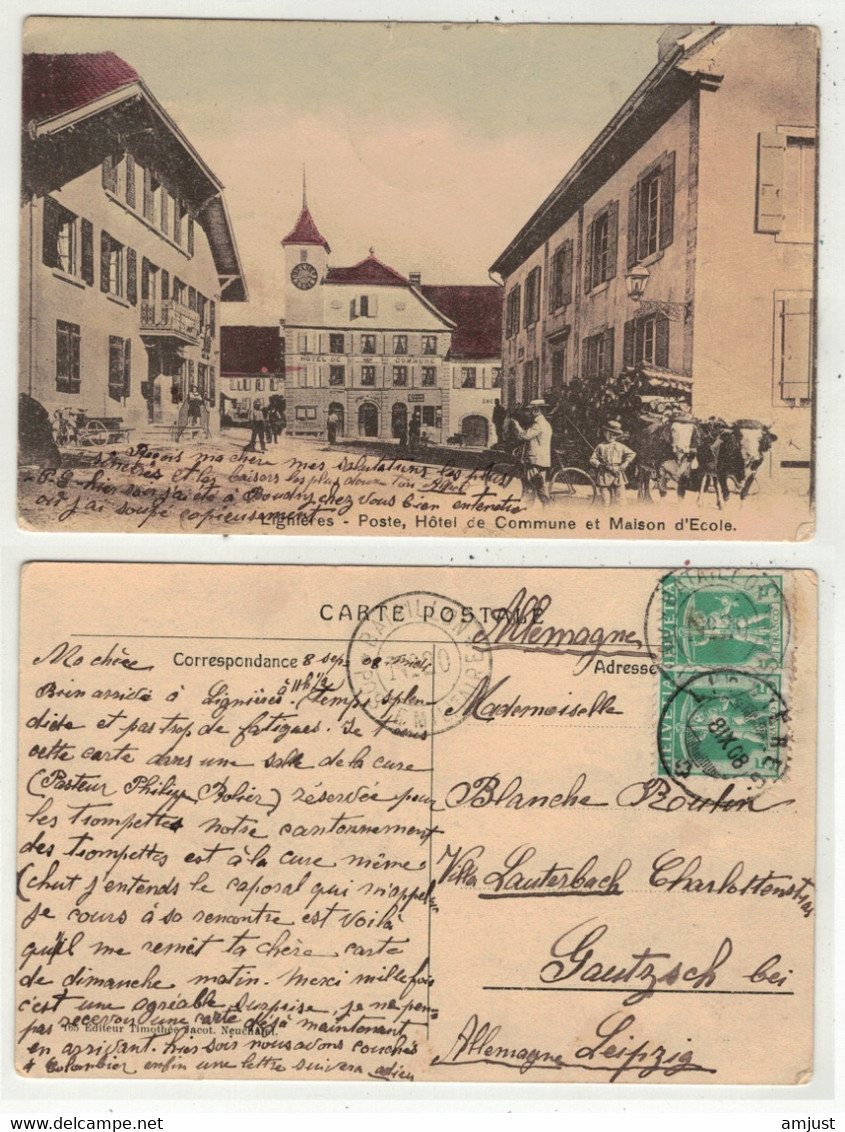 HÔTEL DE COMMUNE
Reçois ma chère mes salutations les plus
sincères et les baisers les plus doux ton
P.S. hier soir j'ai été à Boudry chez vous bien entendu
où j'ai soupé copieusement
Lignières - Poste, Hôtel de Commune et Maison d'Ecole.
CARTE POSTALE
Allemagne
Correspondance 8 sep. 08
Adresse
Ma chère
Bien arrivée à Lignières à 11 h ½ (temps splen
dide et pas trop de fatigues. Je t'écris
cette carte dans une salle de la cure
(Pasteur Philippe Rollier) réservée pour
les trompettes notre cantonnement
des trompettes est à la cure même
(chut j'entends le caporal qui m'appelle
je cours à sa rencontre est voilà
qu'il me remet ta chère carte
de dimanche matin. Merci mille fois
c'est une agréable surprise, je ne pen
pas recevoir une carte déjà maintenant
105 Editeur Timothée Jacot. Neuchâtel.
en arrivant. hier soir nous avons couchés
à Colombier enfin une lettre suivra adieu
Mademoiselle
Blanche Roulin
Villa Lauterbach Charlottenstras
Gautzsch bei
Allemagne Leipzig
BATAILLON
HELVETIA
LIGNIERES
8 IX 08
amjust
delcampe.net